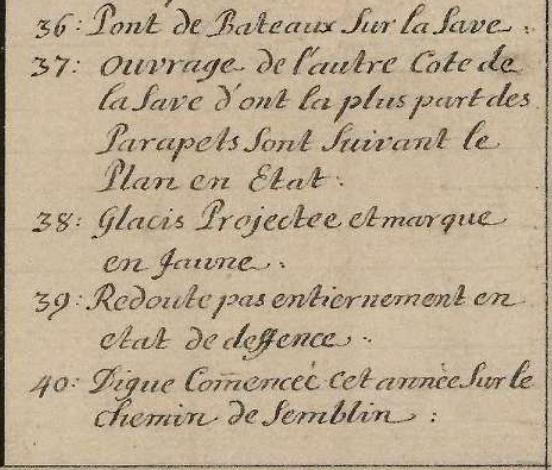 36: Pont de Bateaux sur la Save :
37: ouvrage de l'autre Cote de
la Save d'ont la plus part des
Parapets sont suivant le
Plan en Etat :
38: Glacis Projectee et marque
en Jaune :
39: Redoute pas entiernement en
etat de deffence :
40: Digue Com̄enceé cet année sur le
chemin de Semblin :